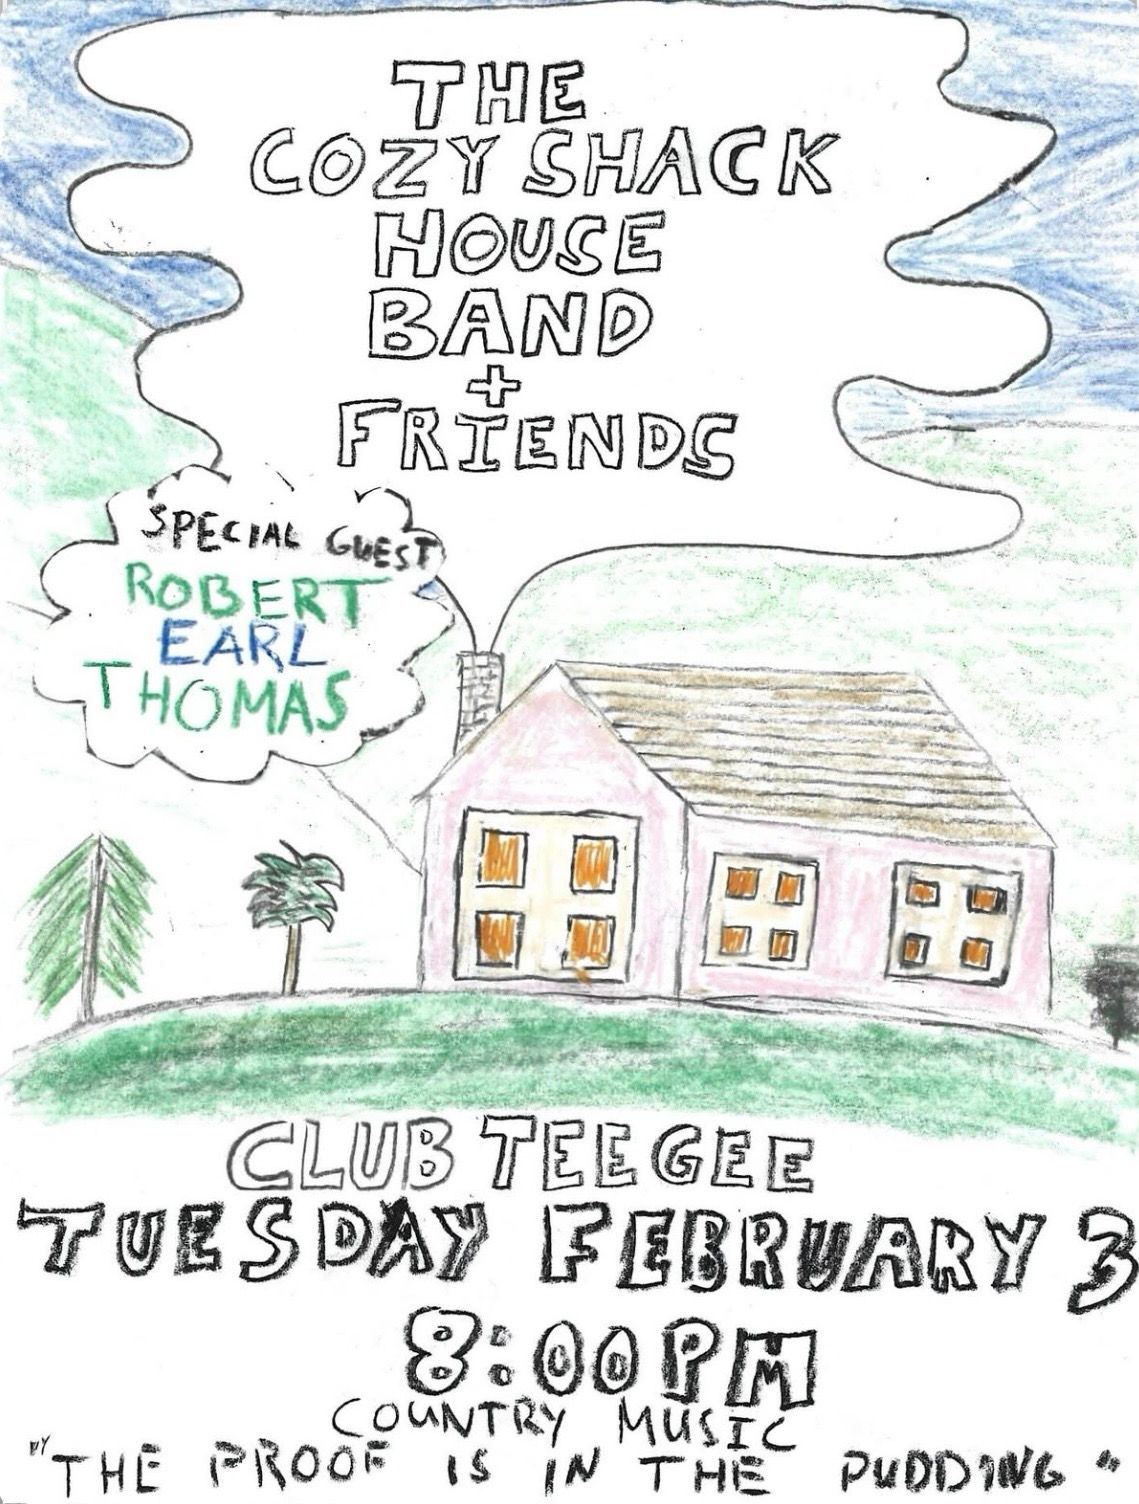 THE
COZY SHACK
HOUSE
BAND
+
FRIENDS
SPECIAL GUEST
ROBERT
EARL
THOMAS
CLUB TEEGEE
TUESDAY FEBRUARY 3
8:00PM
COUNTRY MUSIC
"THE PROOF IS IN THE PUDDING"